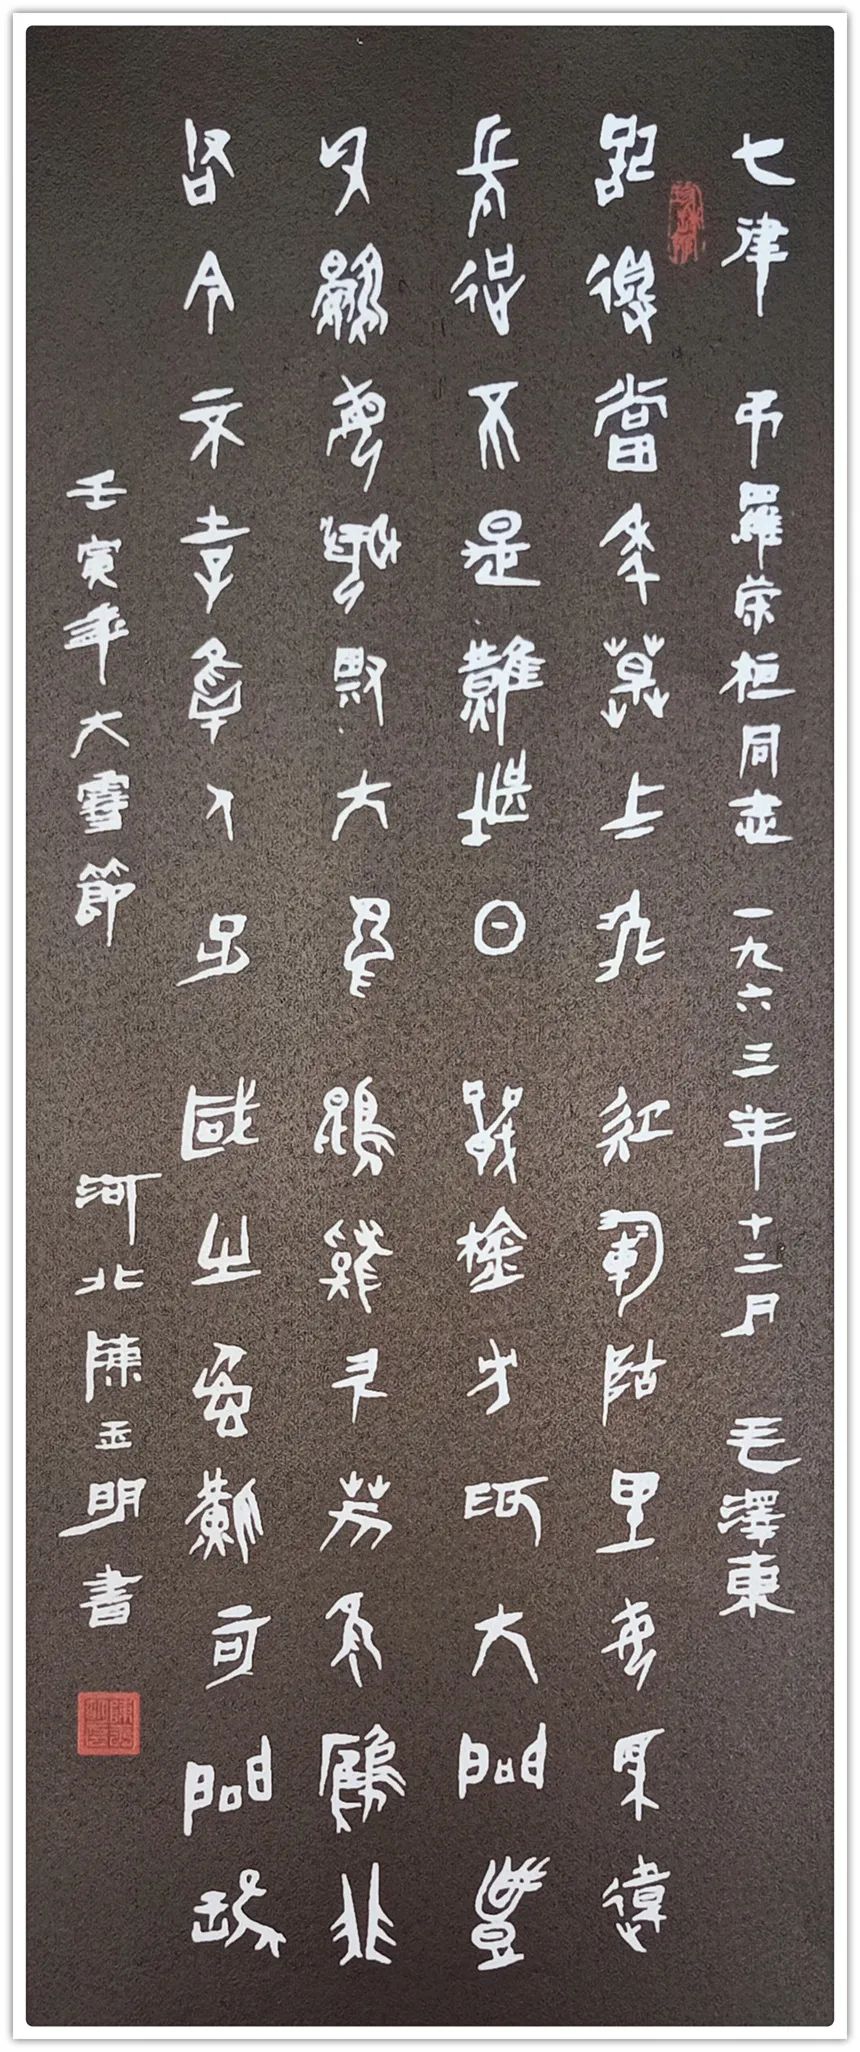 七律 弔羅荣桓同志 一九六三年十二月 毛澤東
記得當年草上飛 紅軍隊里每相違
長征不是難堪日 戰錦方為大問題
斥鷃每聞欺大鳥 鵾雞長笑老鷹非
君今不幸離人世 國有疑難可問誰
壬寅年大雪節 河北陳玉明書